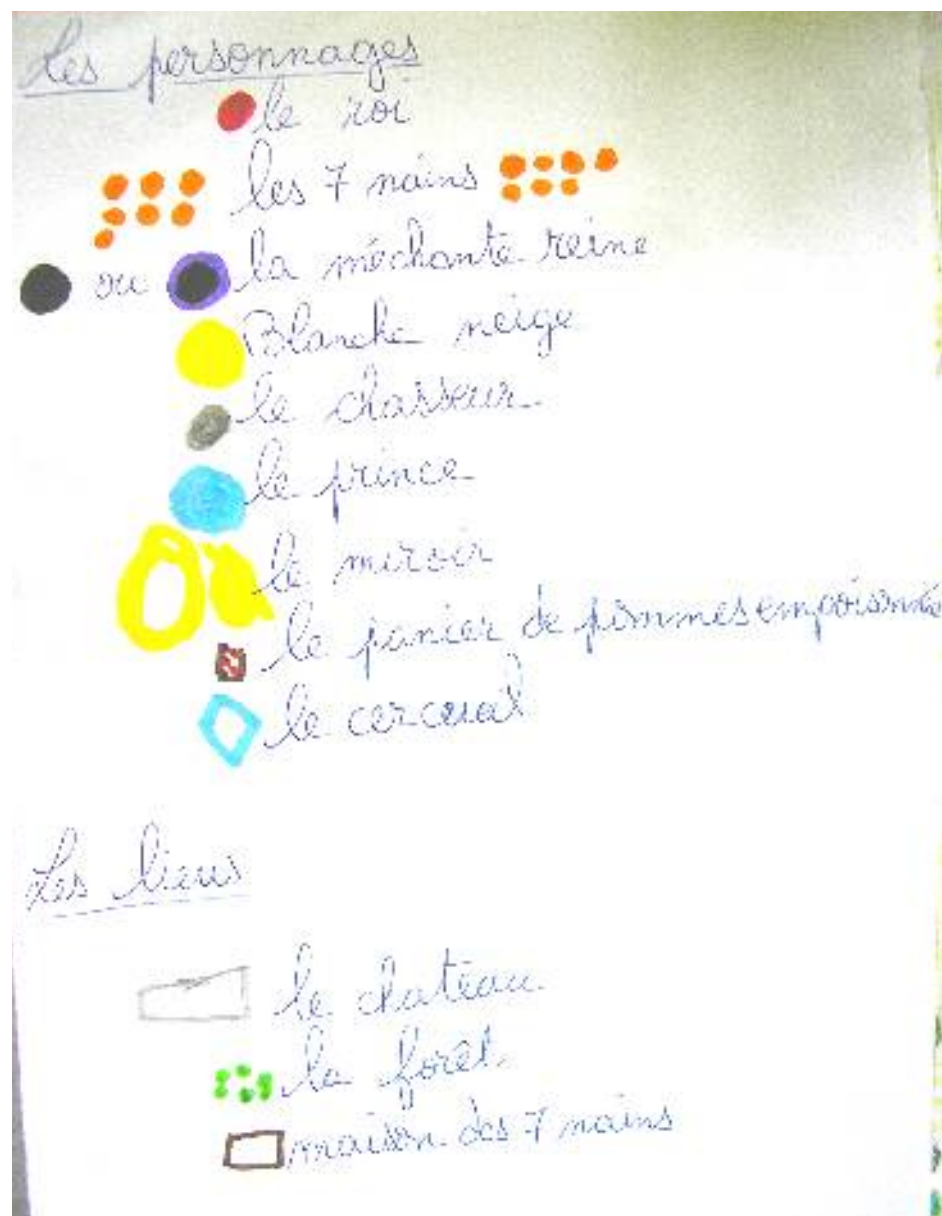 Les personnages
le roi
les 7 nains
ou la méchante reine
Blanche neige
le chasseur
le prince
le miroir
le panier de pommes empoisonnée
le cercueil
Les lieux
le chateau
la forêt
maison des 7 nains